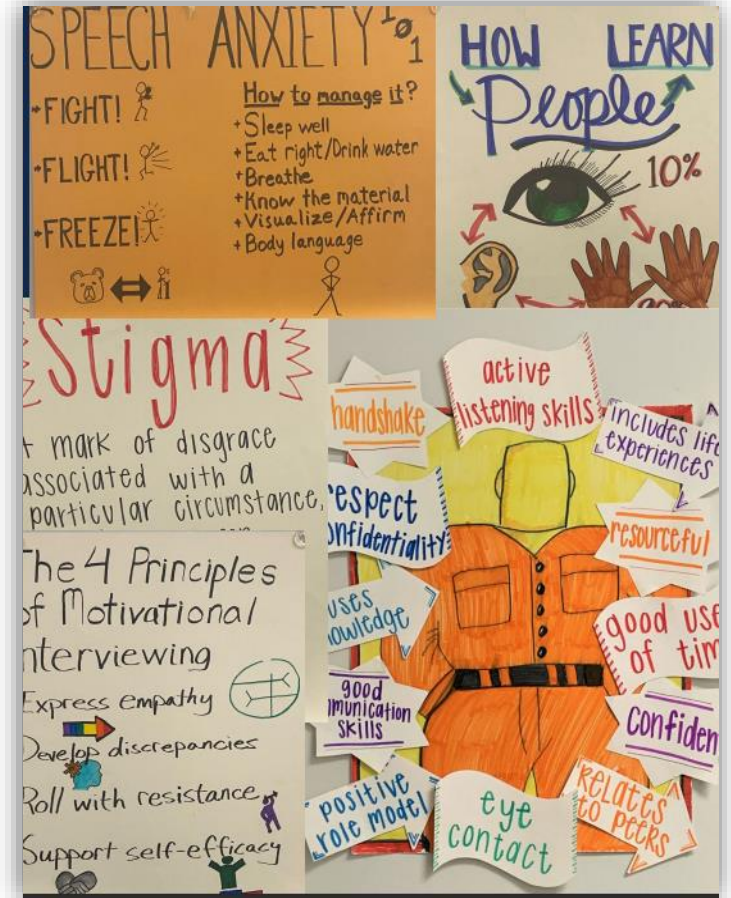 SPEECH ANXIETY 101
FIGHT!
FLIGHT!
FREEZE!
How to manage it?
+Sleep well
+Eat right/Drink water
+Breathe
+Know the material
+Visualize/Affirm
+Body language
HOW People LEARN
10%
Stigma
mark of disgrace
associated with a
particular circumstance,
The 4 Principles
of Motivational
nterviewing
Express empathy
Develop discrepancies
Roll with resistance
Support self-efficacy
active
listening skills
handshake
includes lif
experiences
respect
onfidentiality
resourceful
uses
owledge
good use
of tim
good
munication
skills
confiden
positive
role model
eye
contact
RELATES
to peers